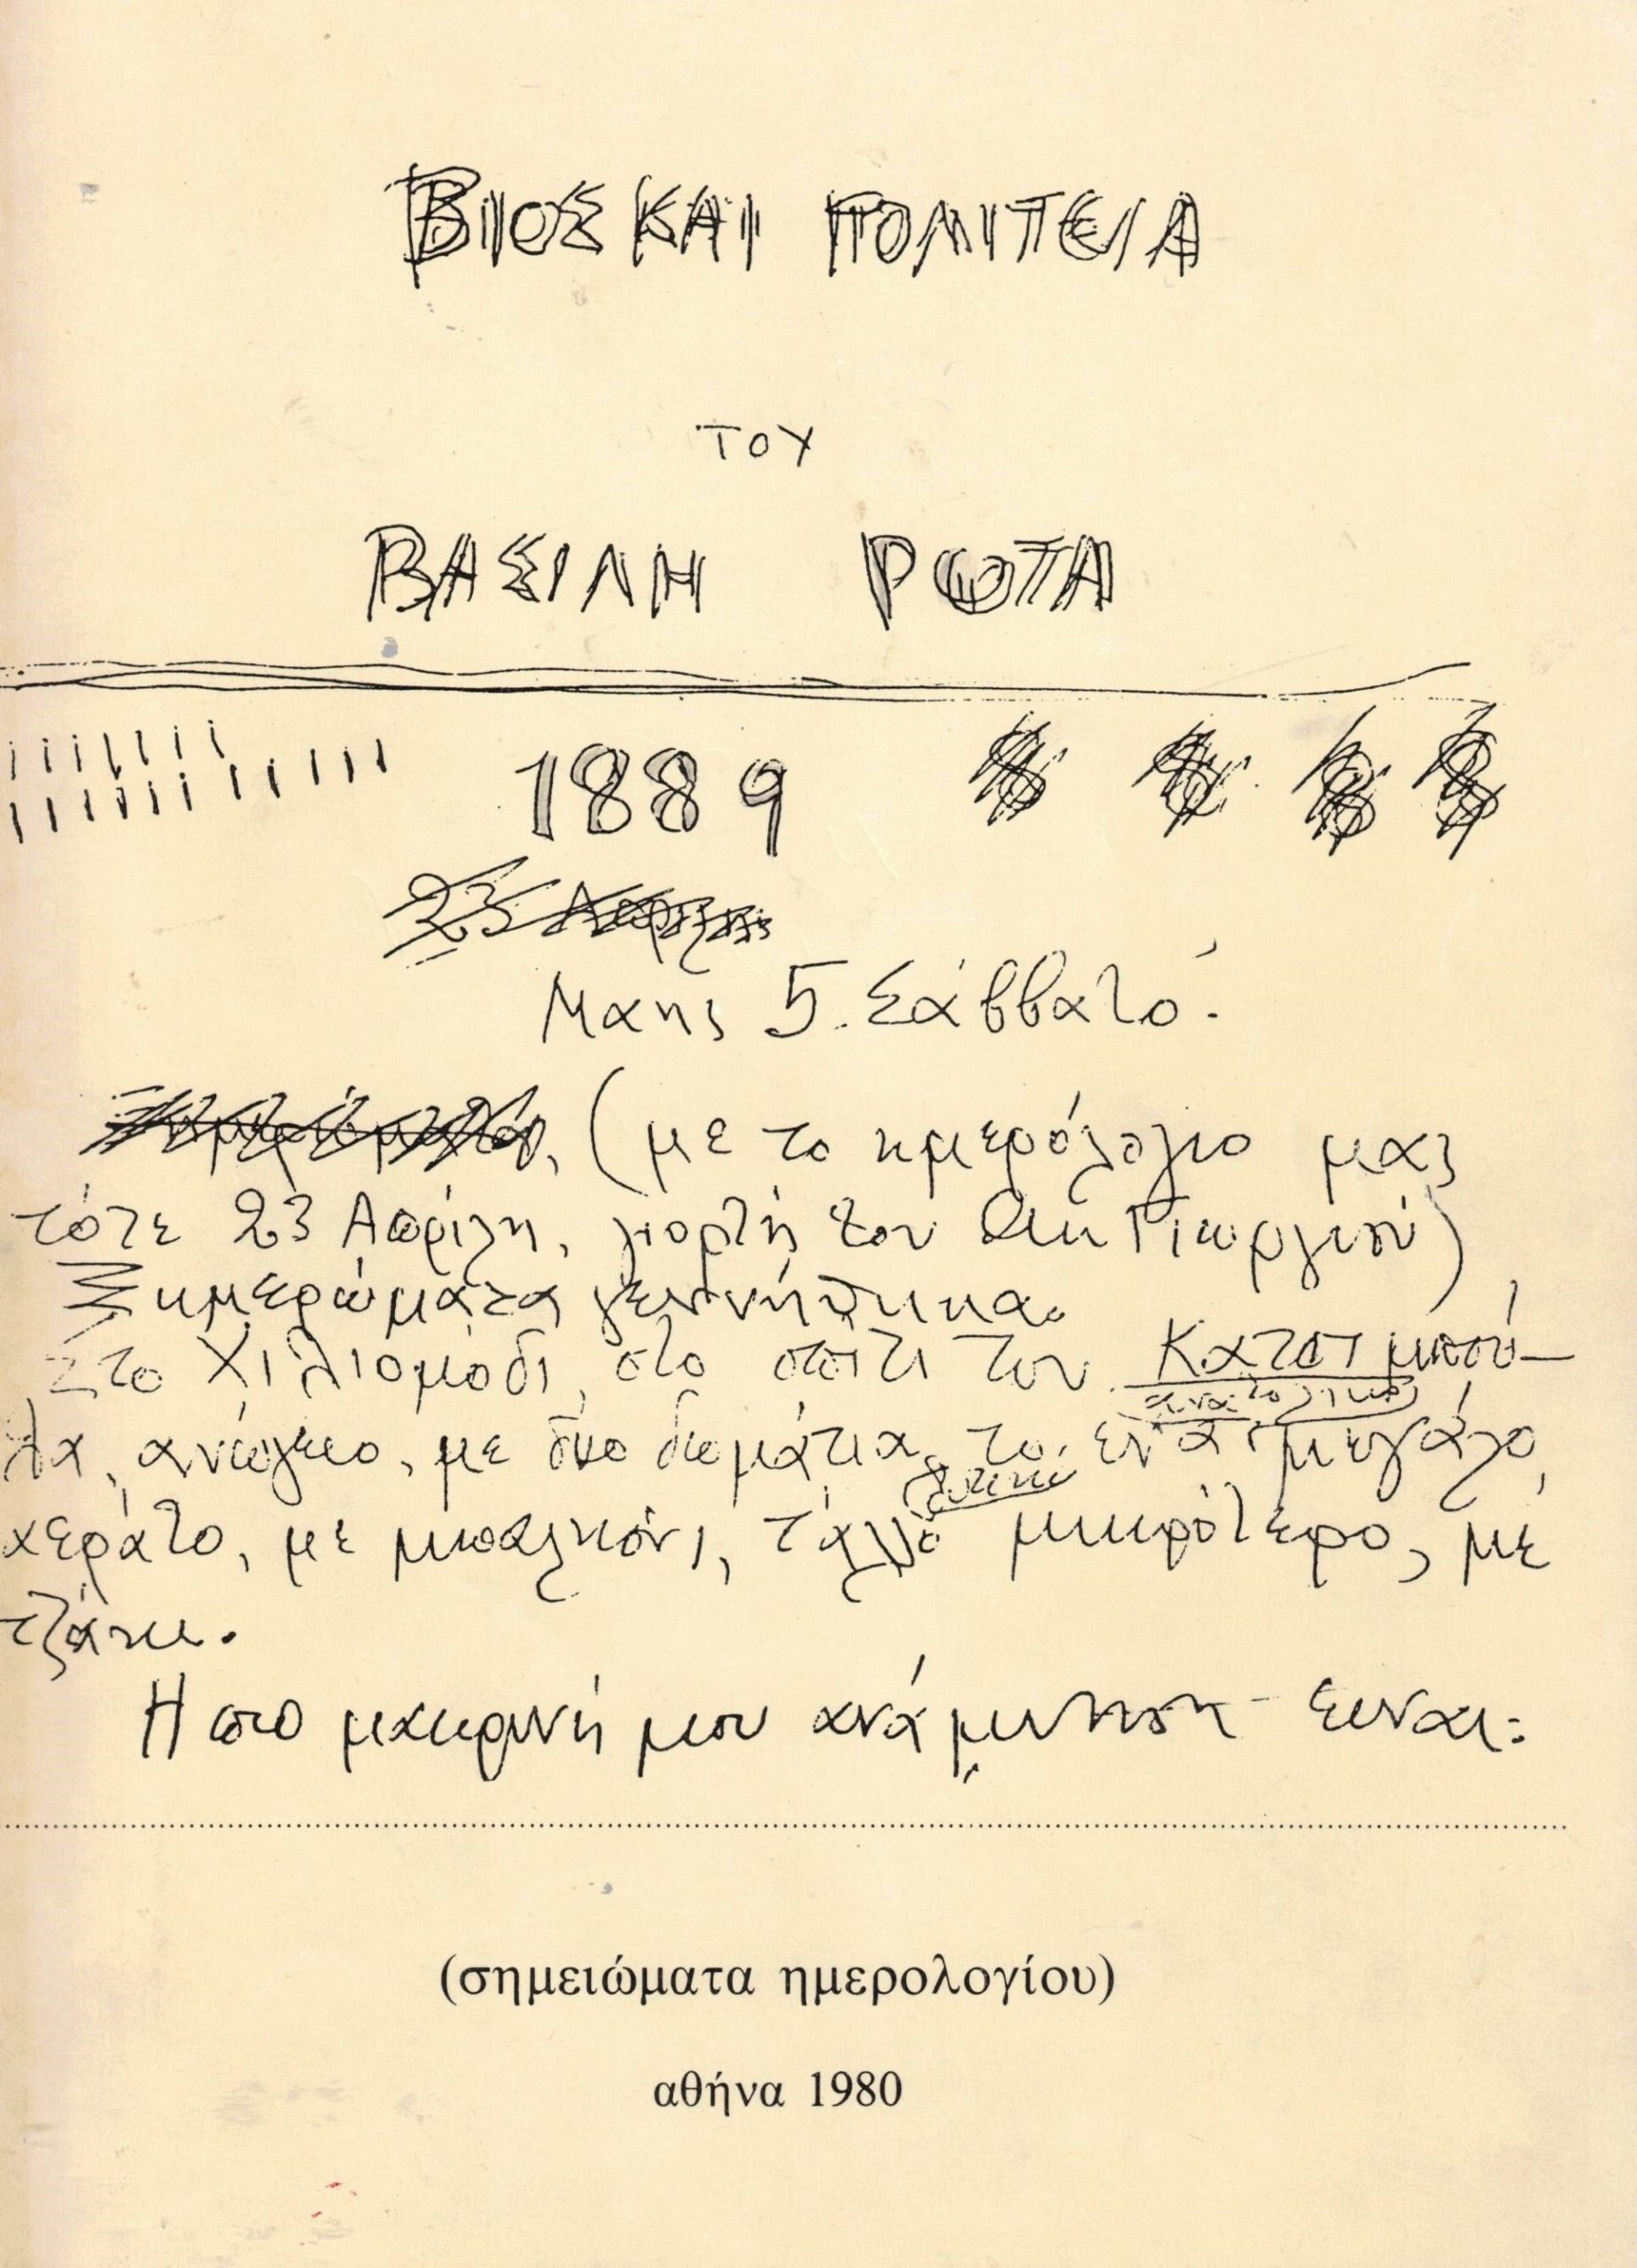 ΒΙΟΣ ΚΑΙ ΠΟΛΙΤΕΙΑ
ΤΟΥ
ΒΑΣΙΛΗ ΡΩΤΑ
1889
23 Απρίλη
Μαης 5. Σάββατο.
(με το ημερόλογιο μας
τότε 23 Απρίλη, γιορτή του Αη Γιωργιού)
Ξημερώματα γεννήθηκα.
Στο Χιλιομόδι, στο σπίτι του Κατσιμπού–
ανατολικό
λα, ανώγειο, με δυο δωμάτια, το ένα μεγάλο,
δυτικό
χεράτο, με μπαλκόνι, τάλλο μικρότερο, με
τζάκι.
Η πιο μακρινή μου ανάμνηση ειναι:
(σημειώματα ημερολογίου)
αθήνα 1980